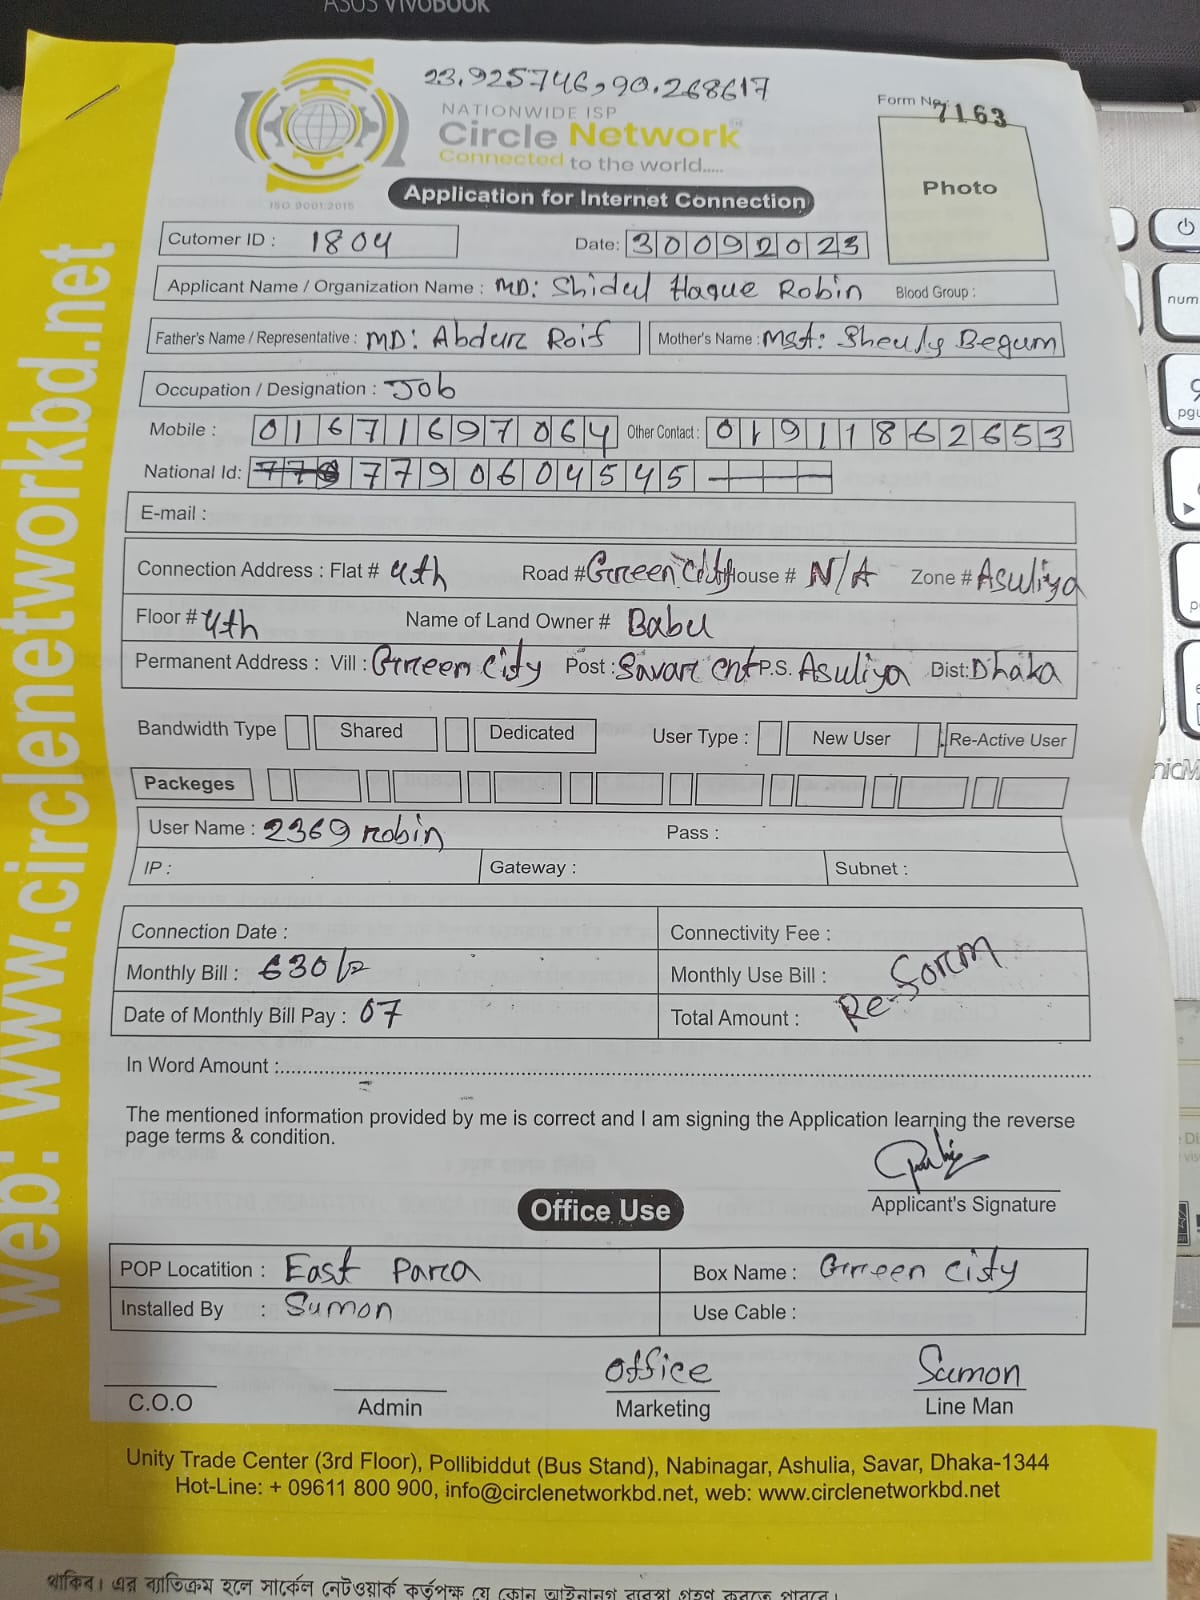 ASUS VIVOBOOK
23.925746,90.268617
NATIONWIDE ISP
Circle Network
Connected to the world.....
ISO 9001:2015
Form No: 7163
Photo
Application for Internet Connection
Cutomer ID : 1804 Date: 30092023
Applicant Name / Organization Name : MD: Shidul Haque Robin Blood Group :
Father's Name / Representative : MD: Abdur Roif Mother's Name : Mst: Sheuly Begum
Occupation / Designation : Job
Mobile : 01671697064 Other Contact : 01911862653
National Id: 7790604545
E-mail :
Connection Address : Flat # 4th Road # Green City House # N/A Zone # Asuliya
Floor # 4th Name of Land Owner # Babu
Permanent Address : Vill : Green City Post : Savar Cnt P.S. Asuliya Dist: Dhaka
Bandwidth Type Shared Dedicated User Type : New User Re-Active User
Packeges
User Name : 2369 robin Pass :
IP : Gateway : Subnet :
Connection Date : Connectivity Fee :
Monthly Bill : 630/= Monthly Use Bill :
Re-Form
Date of Monthly Bill Pay : 07 Total Amount :
In Word Amount :
The mentioned information provided by me is correct and I am signing the Application learning the reverse
page terms & condition.
Applicant's Signature
Office Use
POP Locatition : East Para Box Name : Green City
Installed By : Sumon Use Cable :
Office Sumon
C.O.O Admin Marketing Line Man
Unity Trade Center (3rd Floor), Pollibiddut (Bus Stand), Nabinagar, Ashulia, Savar, Dhaka-1344
Hot-Line: + 09611 800 900, info@circlenetworkbd.net, web: www.circlenetworkbd.net
web: www.circlenetworkbd.net
থাকিব। এর ব্যাতিক্রম হলে সার্কেল নেটওয়ার্ক কর্তৃপক্ষ যে কোন আইনানুগ ব্যবস্থা গ্রহণ করতে পারবে।
num